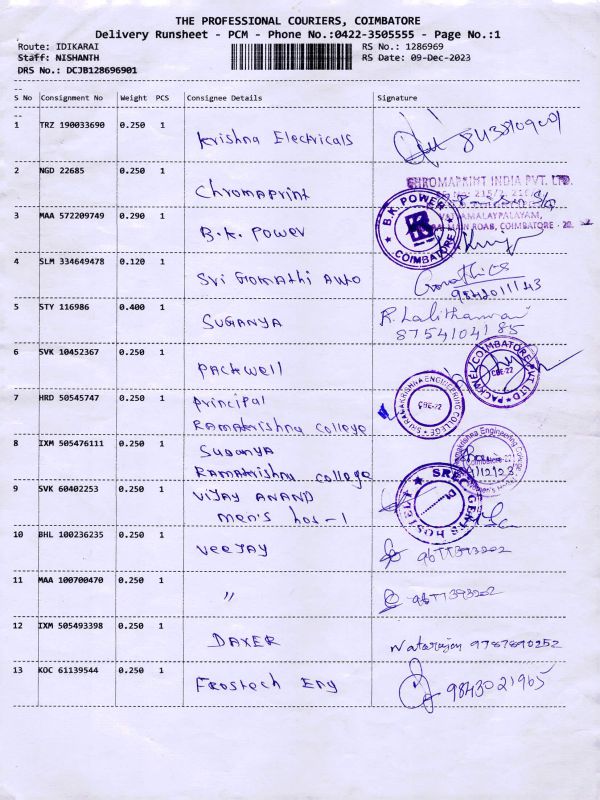 THE PROFESSIONAL COURIERS, COIMBATORE
Delivery Runsheet - PCM - Phone No.:0422-3505555 - Page No.:1
Route: IDIKARAI RS No.: 1286969
Staff: NISHANTH RS Date: 09-Dec-2023
DRS No.: DCJB128696901
S No Consignment No Weight PCS Consignee Details Signature
1 TRZ 190033690 0.250 1 Krishna Electricals
2 NGD 22685 0.250 1 Chromaprint CHROMAPRINT INDIA PVT. LTD.
3 MAA 572209749 0.290 1 B.K. Power B.K. POWER COIMBATORE
4 SLM 334649478 0.120 1 Sri Gomathi Auto
5 STY 116986 0.400 1 SUGANYA R. Lalithamani
8754104185
6 SVK 10452367 0.250 1 Packwell CBE-22
7 HRD 50545747 0.250 1 Principal
Ramakrishna college CBE-22
8 IXM 505476111 0.250 1 Suganya
Ramakrishna college
9 SVK 60402253 0.250 1 VIJAY ANAND
men's hos-1 SREC GENTS HOSTEL
10 BHL 100236235 0.250 1 Veejay
11 MAA 100700470 0.250 1 "
12 IXM 505493398 0.250 1 DAXER Natarajan 9787890252
13 KOC 61139544 0.250 1 Frostech Eng 9843021965